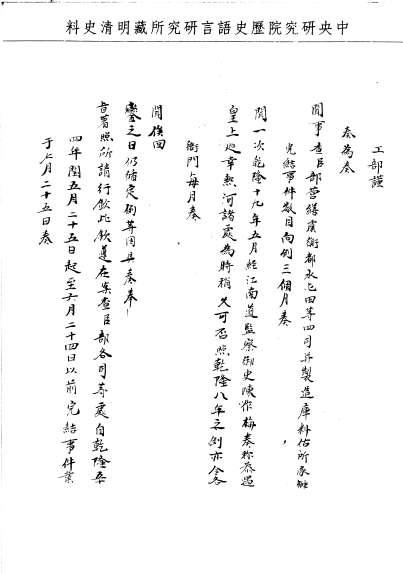 中央研究院歷史語言研究所藏明清史料
工部謹
奏為奏
聞事查臣部營繕虞衡都水屯田等四司并製造庫料估所承辦
完結事件數目向例三個月奏
聞一次乾隆十九年五月經江南道監察御史陳作梅奏称恭遇
皇上巡幸熱河諸處為時稍久可否照乾隆八年之例亦令各
衙門每月奏
聞俟回
鑾之日仍循定例等因具奏奉
旨著照所請行欽此欽遵在案查臣部各司等處自乾隆五十
四年閏五月二十五日起至六月二十四日以前完結事件業
于七月二十五日奏